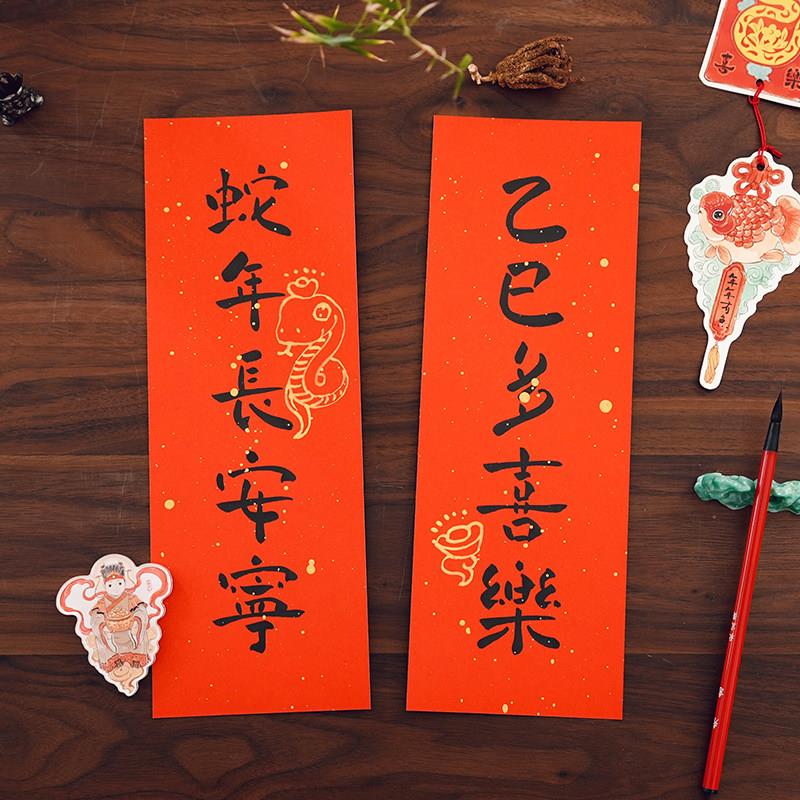 乙巳多喜樂
蛇年長安寧
喜樂
年年有魚